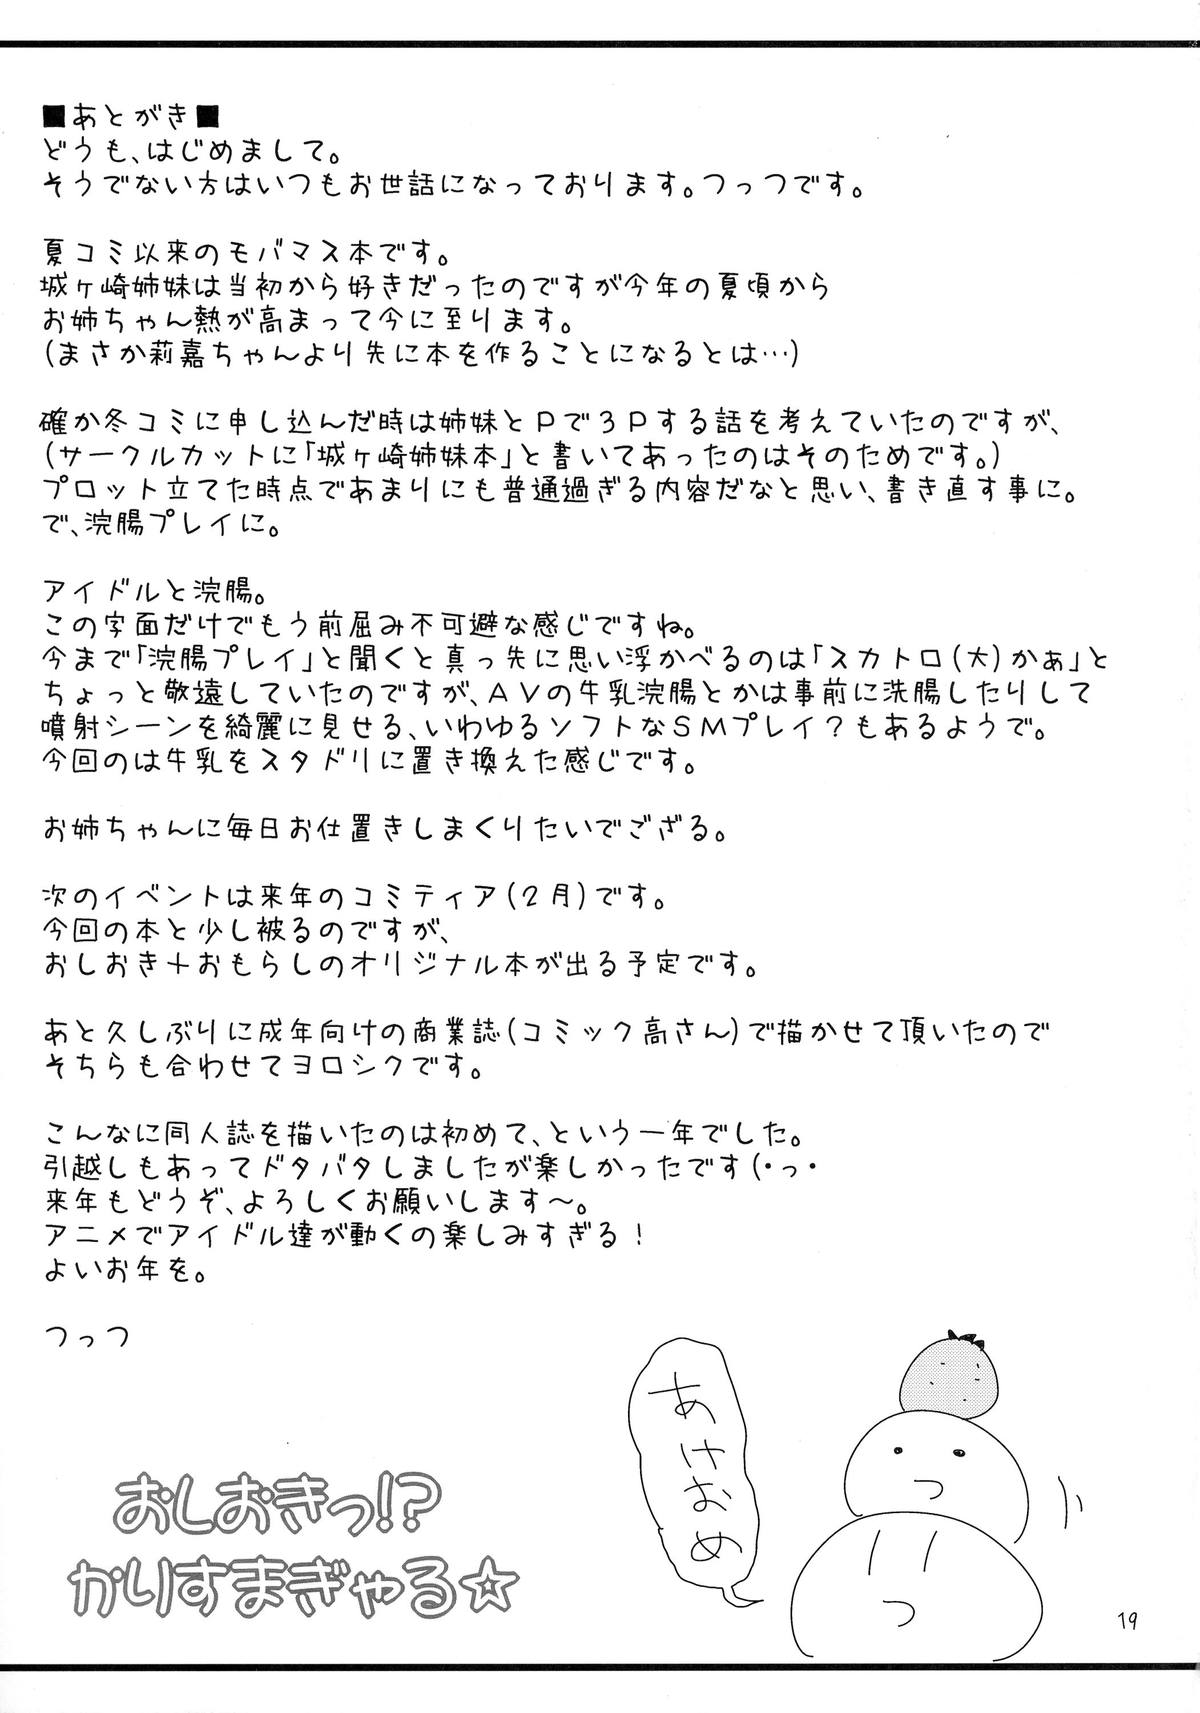 ■あとがき■
どうも、はじめまして。
そうでない方はいつもお世話になっております。つっつです。
夏コミ以来のモバマス本です。
城ヶ崎姉妹は当初から好きだったのですが今年の夏頃から
お姉ちゃん熱が高まって今に至ります。
(まさか莉嘉ちゃんより先に本を作ることになるとは…)
確か冬コミに申し込んだ時は姉妹とPで3Pする話を考えていたのですが、
(サークルカットに「城ヶ崎姉妹本」と書いてあったのはそのためです。)
プロット立てた時点であまりにも普通過ぎる内容だなと思い、書き直す事に。
で、浣腸プレイに。
アイドルと浣腸。
この字面だけでもう前屈み不可避な感じですね。
今まで「浣腸プレイ」と聞くと真っ先に思い浮かべるのは「スカトロ(大)かぁ」と
ちょっと敬遠していたのですが、AVの牛乳浣腸とかは事前に洗腸したりして
噴射シーンを綺麗に見せる、いわゆるソフトなSMプレイ?もあるようで。
今回のは牛乳をスタドリに置き換えた感じです。
お姉ちゃんに毎日お仕置きしまくりたいでござる。
次のイベントは来年のコミティア(2月)です。
今回の本と少し被るのですが、
おしおき+おもらしのオリジナル本が出る予定です。
あと久しぶりに成年向けの商業誌(コミック高さん)で描かせて頂いたので
そちらも合わせてヨロシクです。
こんなに同人誌を描いたのは初めて、という一年でした。
引越しもあってドタバタしましたが楽しかったです(・っ・
来年もどうぞ、よろしくお願いします~。
アニメでアイドル達が動くの楽しみすぎる!
よいお年を。
つっつ
あけおめ
つ
っ
おしおきっ!?
かりすまぎゃる☆
19